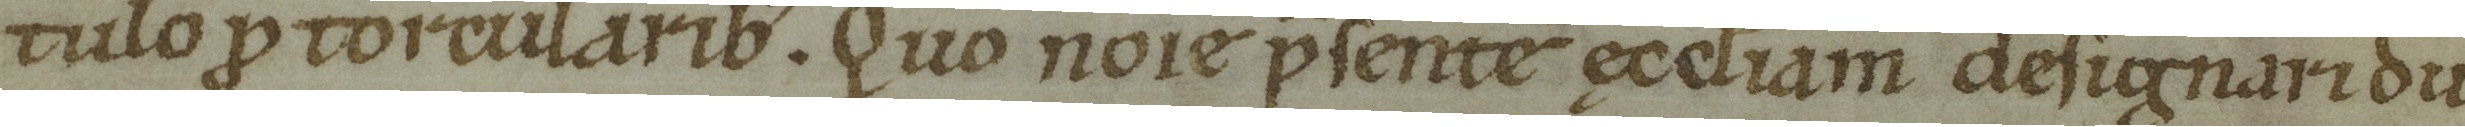 tulo ꝓ torcularib'. Quo noīe p̄sente ęccliam designari du